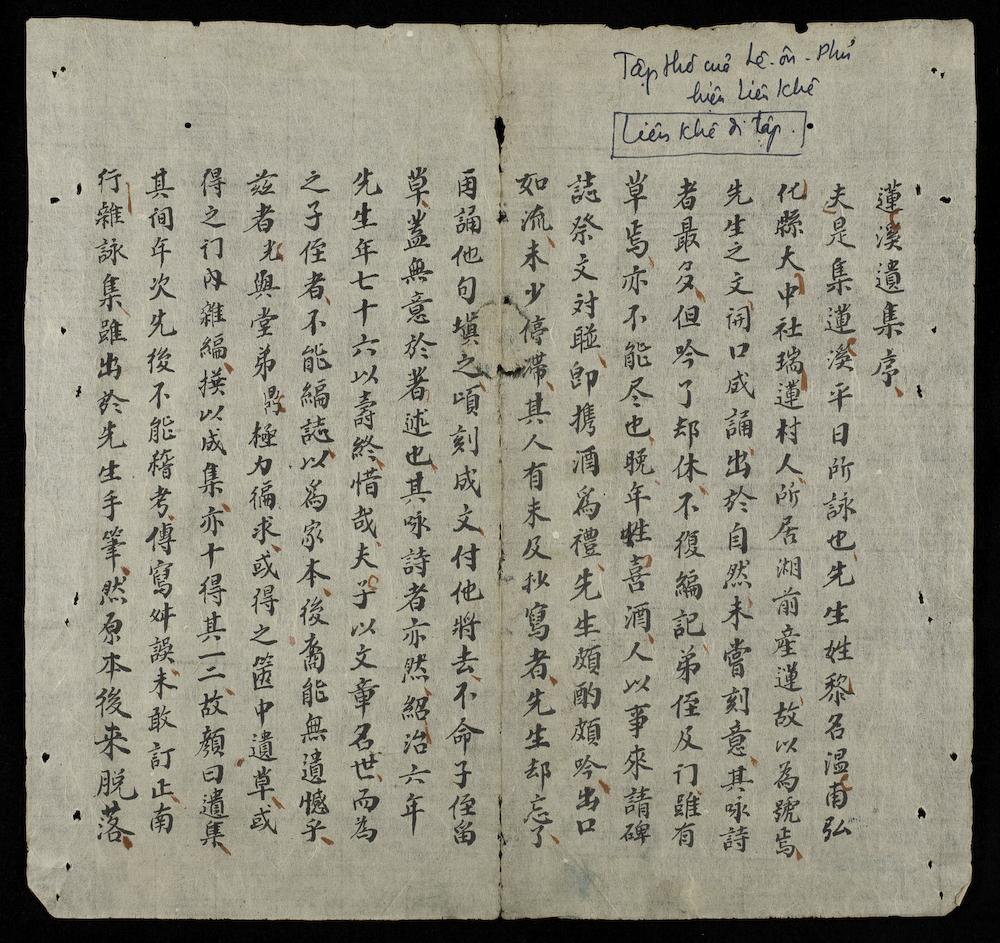 Tập thơ của Lê-ôn-Phủ
hiệu Liên Khê
Liên Khê di tập.
蓮溪遺集序
夫是集蓮溪平日所詠也先生姓黎名温甫弘
化縣大中社瑞蓮村人所居湖前産蓮故以為號焉
先生之文開口成誦出於自然未嘗刻意其咏詩
者最多但吟了却休不復編記弟侄及门雖有
草焉亦不能尽也晚年性喜酒人以事來請碑
誌祭文対聨即携酒為禮先生頗酌頗吟出口
如流未少停滯其人有未及抄寫者先生却忘了
再誦他句塡之頃刻成文付他將去不命子侄留
草盖無意於著述也其咏詩者亦然紹治六年
先生年七十六以壽終惜哉夫子以文章名世而為
之子侄者不能編誌以為家本後裔能無遺憾乎
兹者光與堂弟極力徧求或得之箧中遺草或
得之门內雜編撰以成集亦十得其一二故顔曰遺集
其间年次先後不能稽考傳寫舛誤未敢訂正南
行雜詠集雖出於先生手筆然原本後来脱落